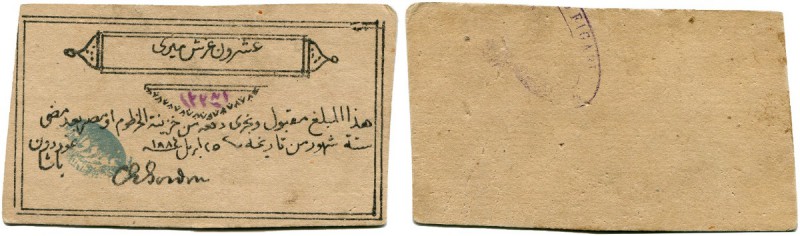 عشرون غرش ميرى
١٢٢٧١
هذا المبلغ مقبول وتجرى دفعه من خزينة الخرطوم او مصر بعد مضى
ستة شهور من تاريخه ٢٥ ابريل ١٨٨٤ غوردون
باشا
C G Gordon